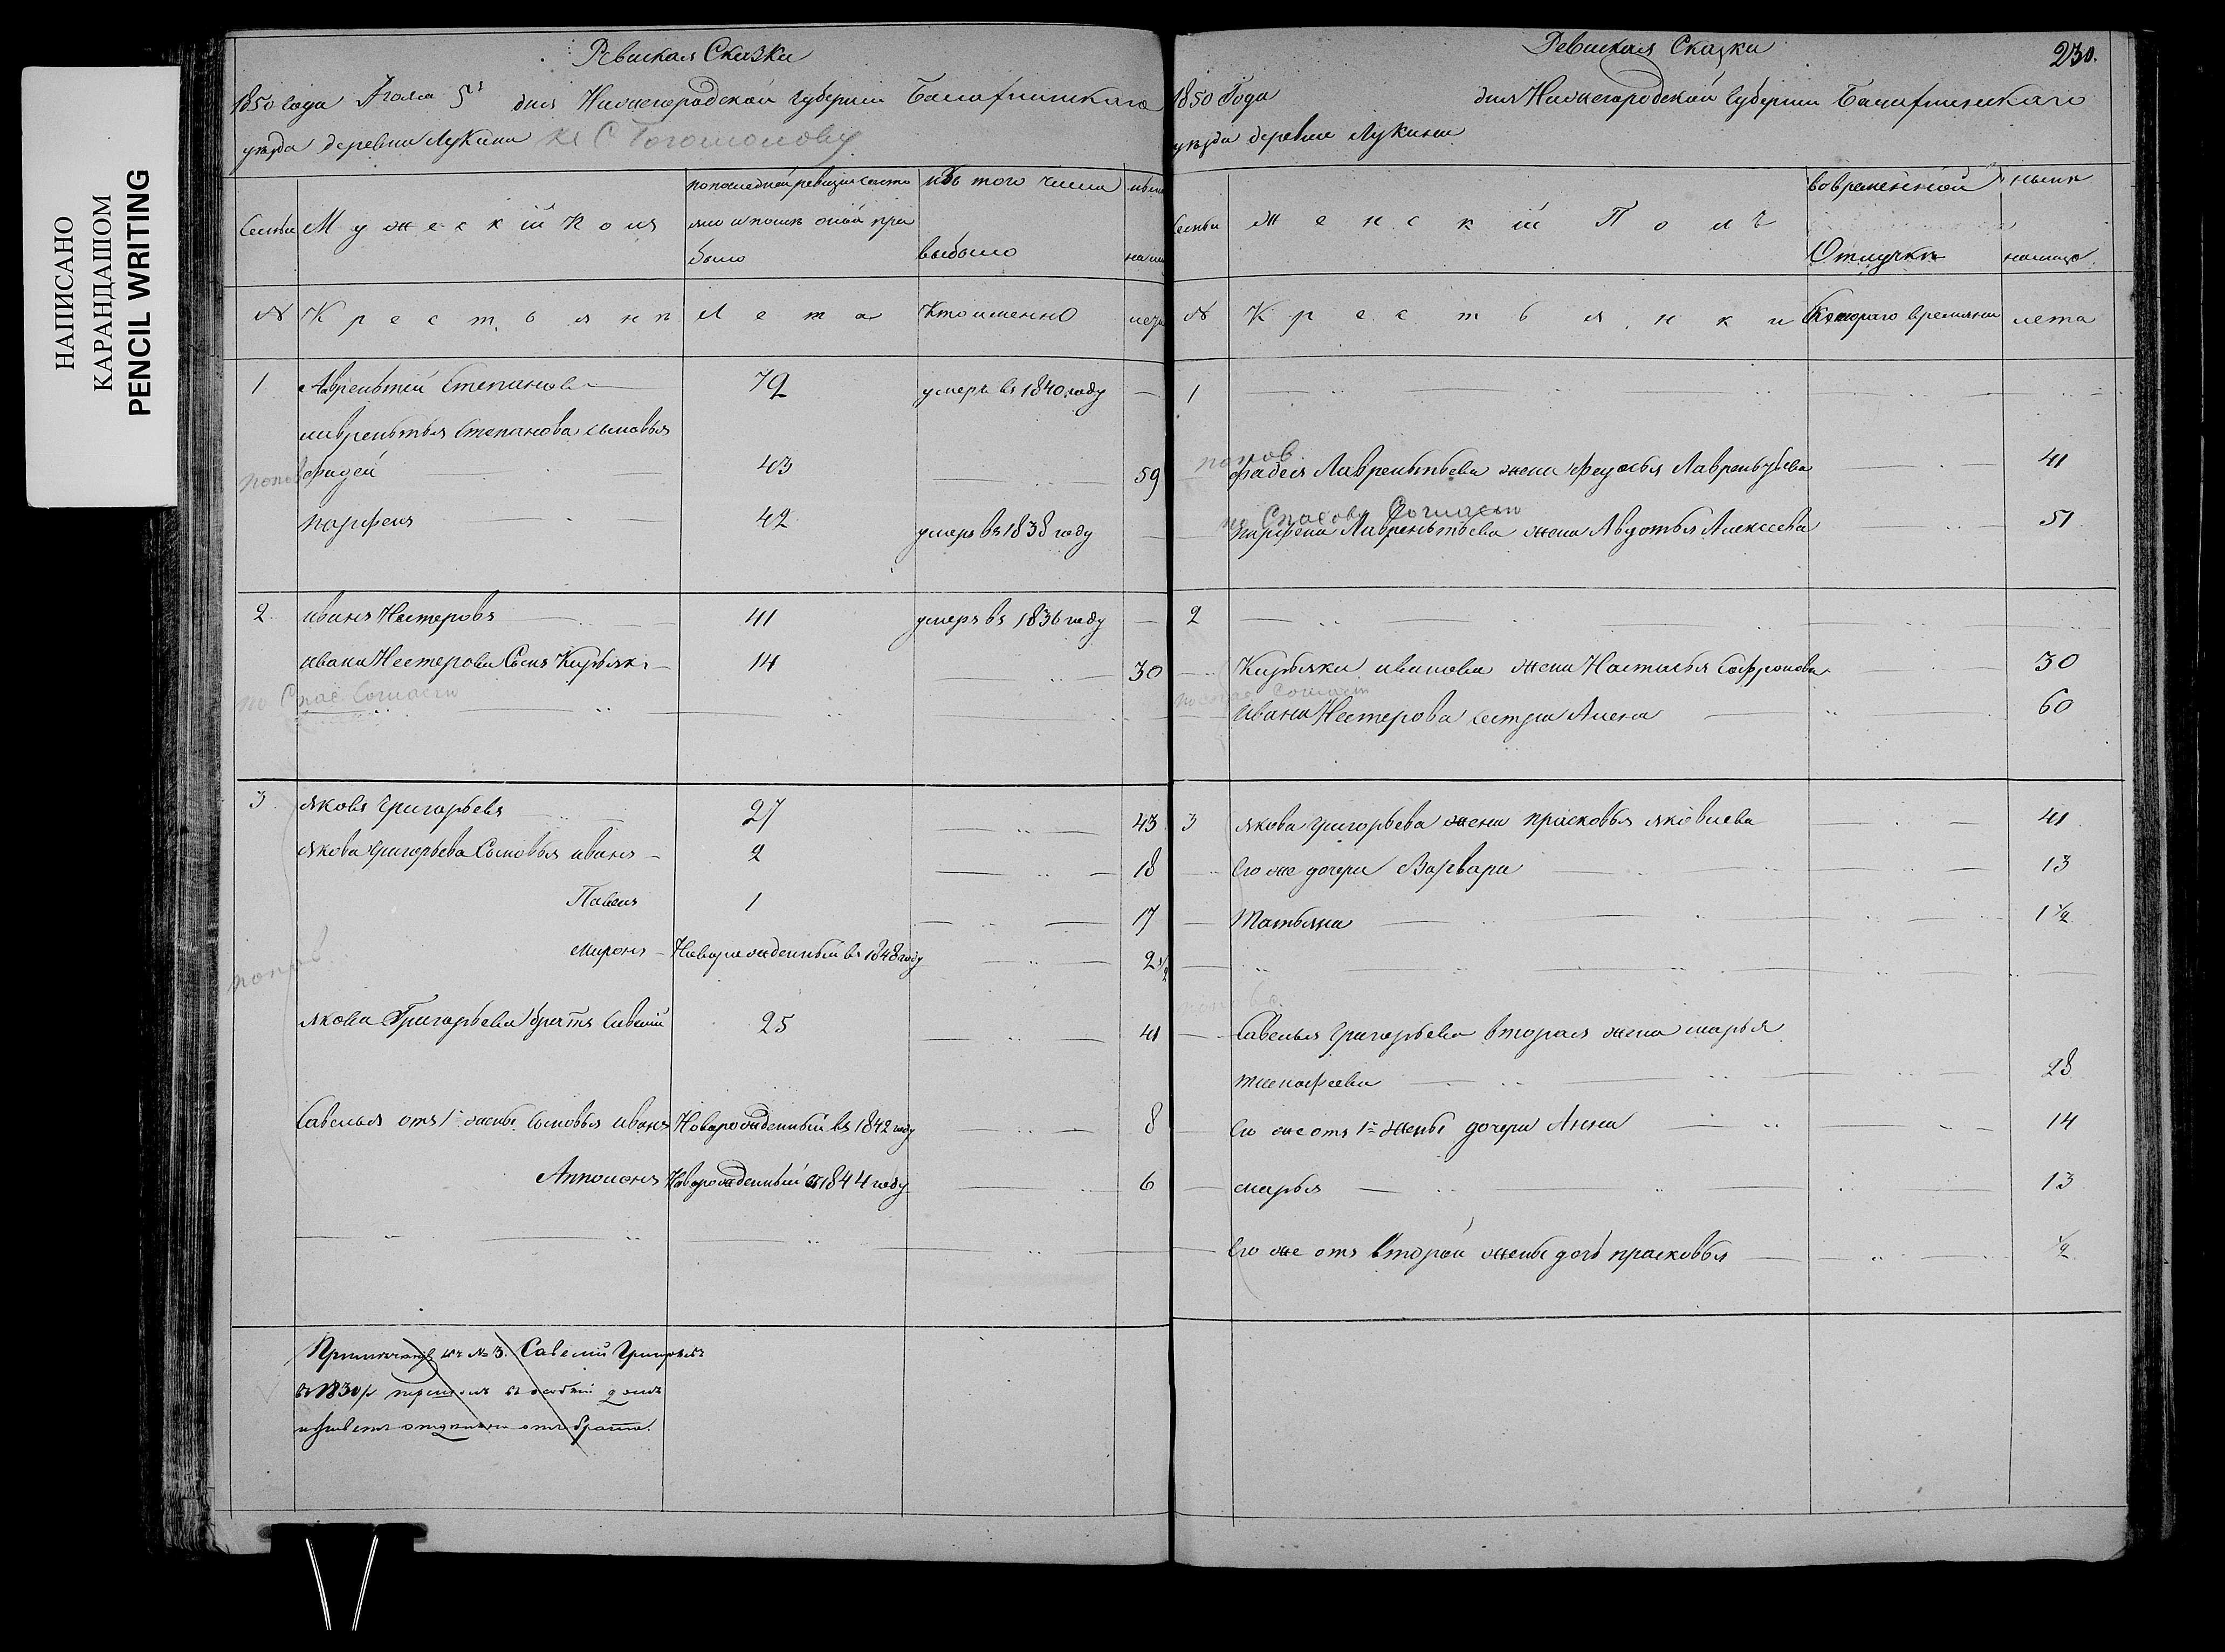 НАПИСАНО
КАРАНДАШОМ
PENCIL WRITING
Ревиская Сказка
1850 года Июля 5 дня Нижегородской губернии Балахнинскаго
уезда деревни Лукина
Семьи Мужескій Полъ по последней ревизіи состояло и после оной прибыло изъ того числа выбыло ныне на лицо
№ Крестьяне Лета Кто именно лета
1 Лаврентій Степановъ 79 умеръ въ 1840 году —
Лаврентья Степанова сыновья
попов Фадей 43 59
парфенъ 42 умеръ въ 1838 году —
2 иванъ Нестеровъ 41 умеръ въ 1836 году —
ивана Нестерова Сынъ Кирьякъ 14 30
по Спас. Согласт
3 яковъ григорьевъ 27 43
якова григорьева Сыновья иванъ 2 18
Павелъ 1 17
миронъ Новорожденный въ 1848 году 2 1/2
попов
якова Григорьева братъ Савелий 25 41
Савелья отъ 1й жены сыновья иванъ Новорожденный въ 1842 году 8
Апполонъ Новорожденный въ 1844 году 6
Примечаніе къ № 3. Савелий Григорьевъ
въ 1830 г. перешолъ въ особый домъ
и живетъ отдельно отъ брата.
Ревиская Сказка 230.
1850 Года дня Нижегородской Губернии Балахнинскаго
уезда деревни Лукина
Семьи Женскій Полъ во временной Отлучке ныне на лицо
№ Крестьянки Котораго времяни лета
1
попов
фадея Лаврентьева жена Федосья Лаврентьева 41
по Спасову Согласт
парфена Лаврентьева жена Авдотья Алексеева 51
2
Кирьяка иванова жена Настасья Софронова 30
по спас. Согласт
ивана Нестерова сестра Алена 60
3 якова григорьева жена прасковья яковлева 41
Его же дочери Варвара 13
татьяна 1 1/2
Савелья григорьева вторая жена марья
тимофеева 28
Его же отъ 1й жены дочери Анна 14
марья 13
Его же отъ второй жены дочь прасковья 1/2